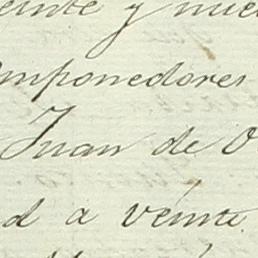 veinte y nue
omponedores
Juan de O
d a veinte